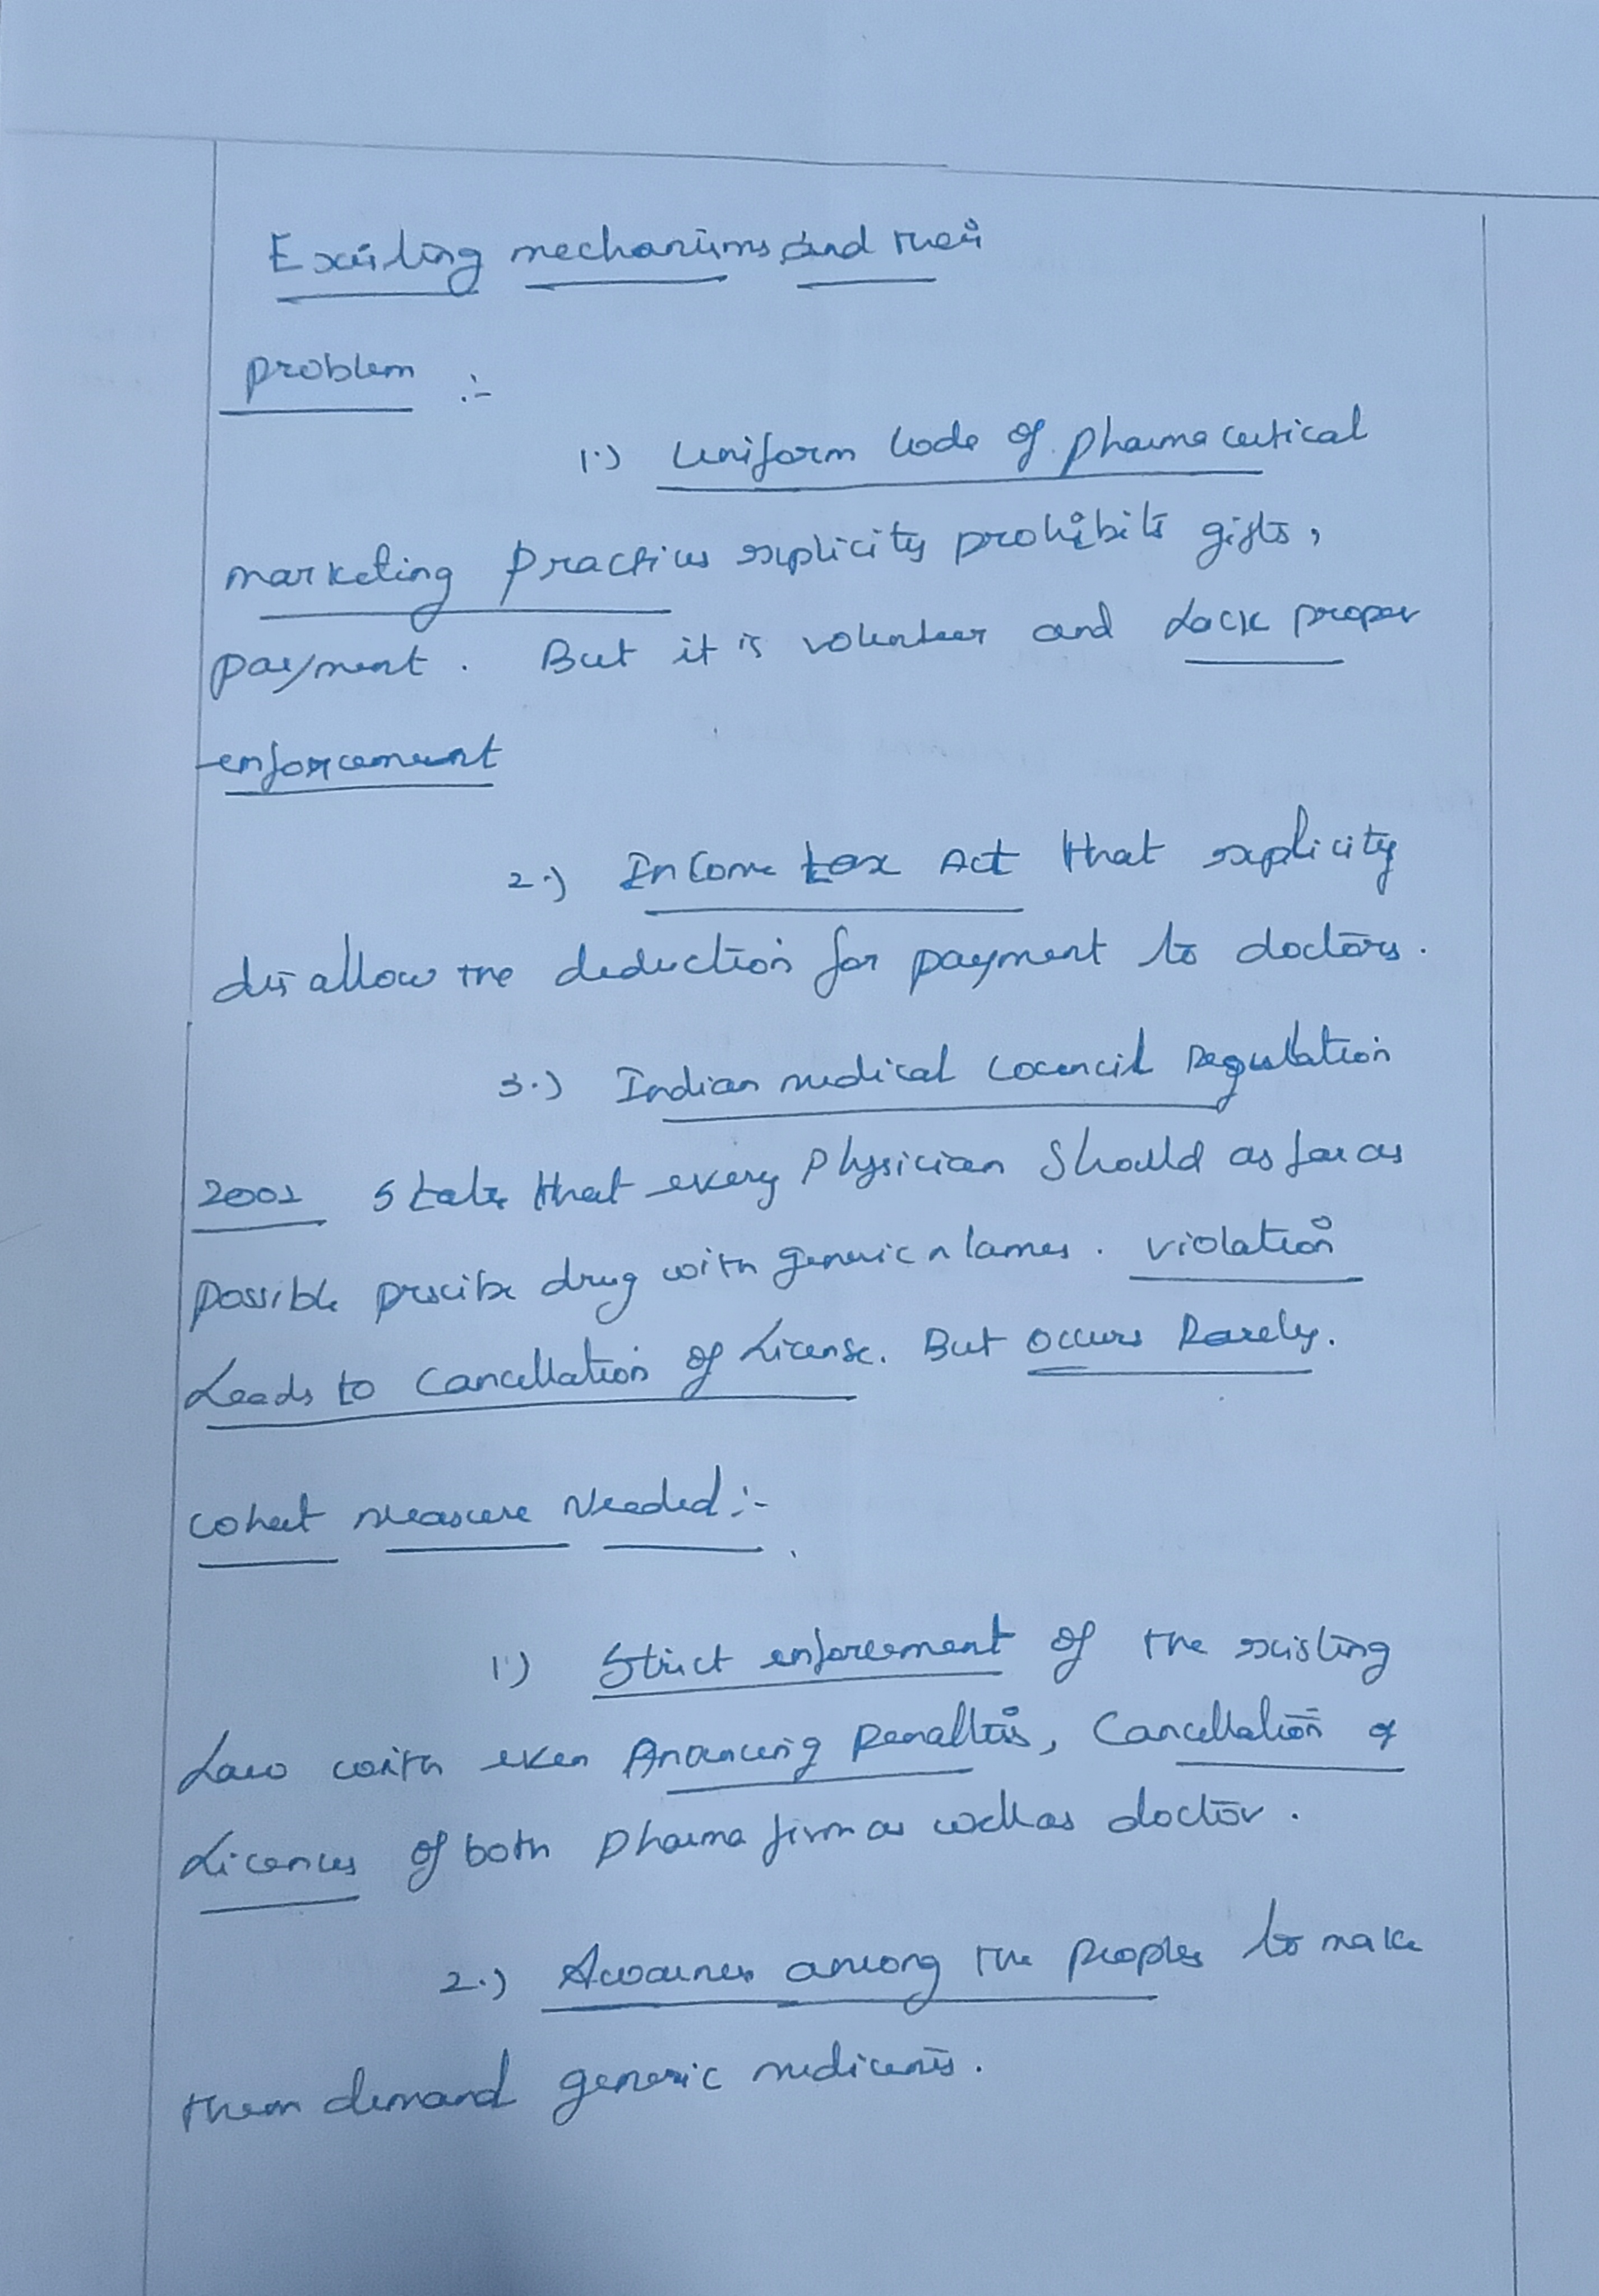 Existing mechanisms and their
problem :-
1.) Uniform Code of pharmaceutical
marketing practices explicity prohibits gifts,
payment. But it is volunteer and Lack proper
enforcement
2.) Income tax Act that explicity
disallow the deduction for payment to doctors.
3.) Indian medical Council Regulation
2002 State that every Physician Should as far as
possible prscibe drug with generic names. violation
Leads to Cancellation of License. But occurs Rarely.
What Measure Needed :-
1) Strict enforcement of the existing
Law with even penalties, Cancellation of
Licences of both pharma firm as well as doctor.
2.) Awarness among the peoples to make
them demand generic medicents.